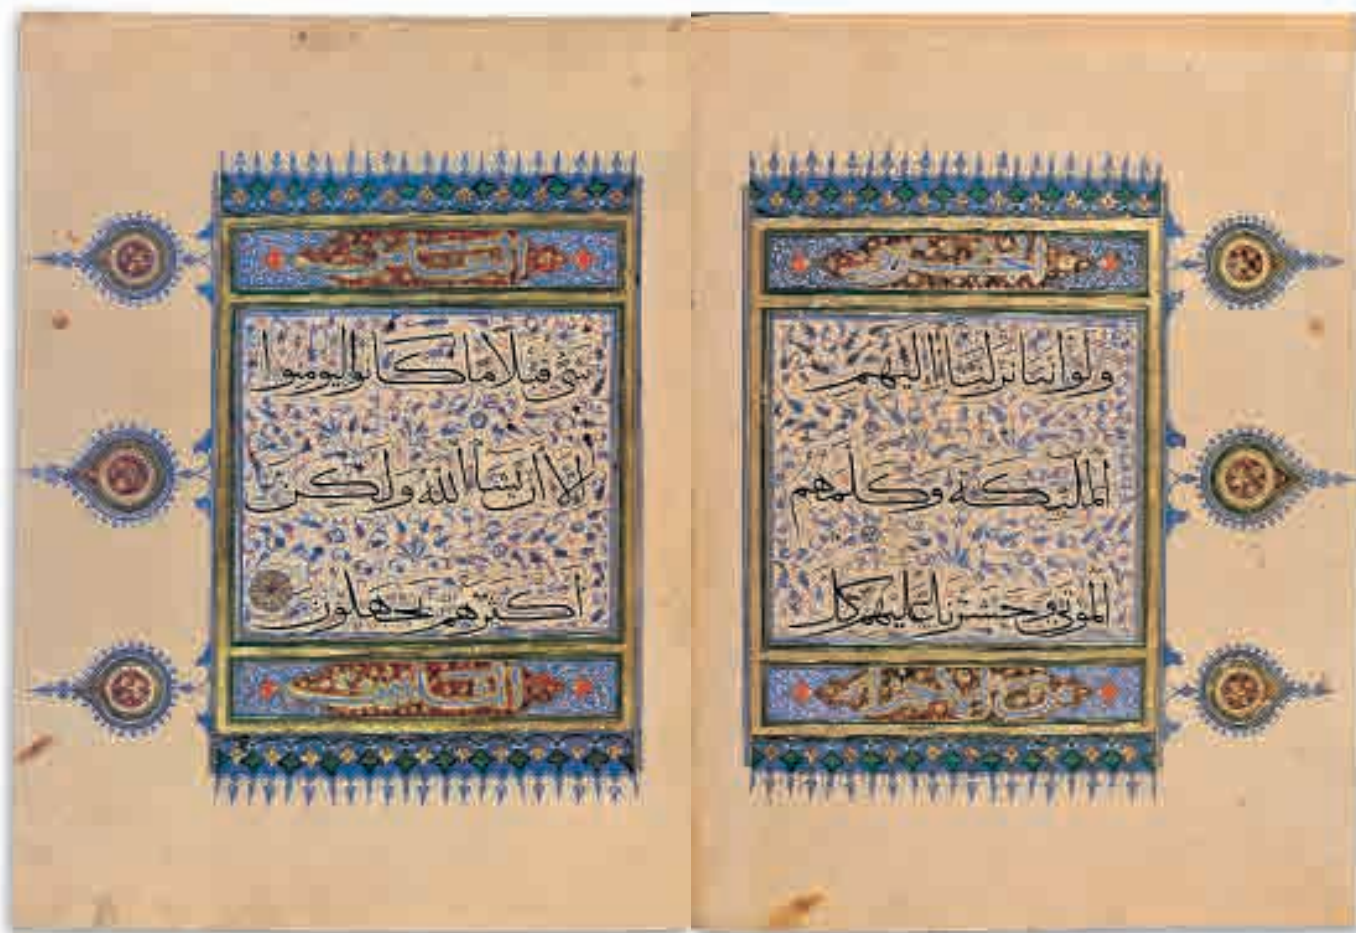 ولو اننا نزلنا اليهم
الملئكة وكلمهم
الموتى وحشرنا عليهم كل
شي قبلا ما كانوا ليومنوا
الا ان يشا الله ولكن
اكثرهم يجهلون